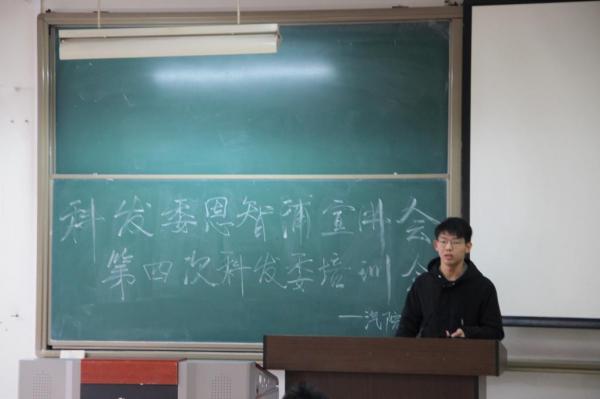 科发委恩智浦宣讲会
第四次科发委培训会
—汽院